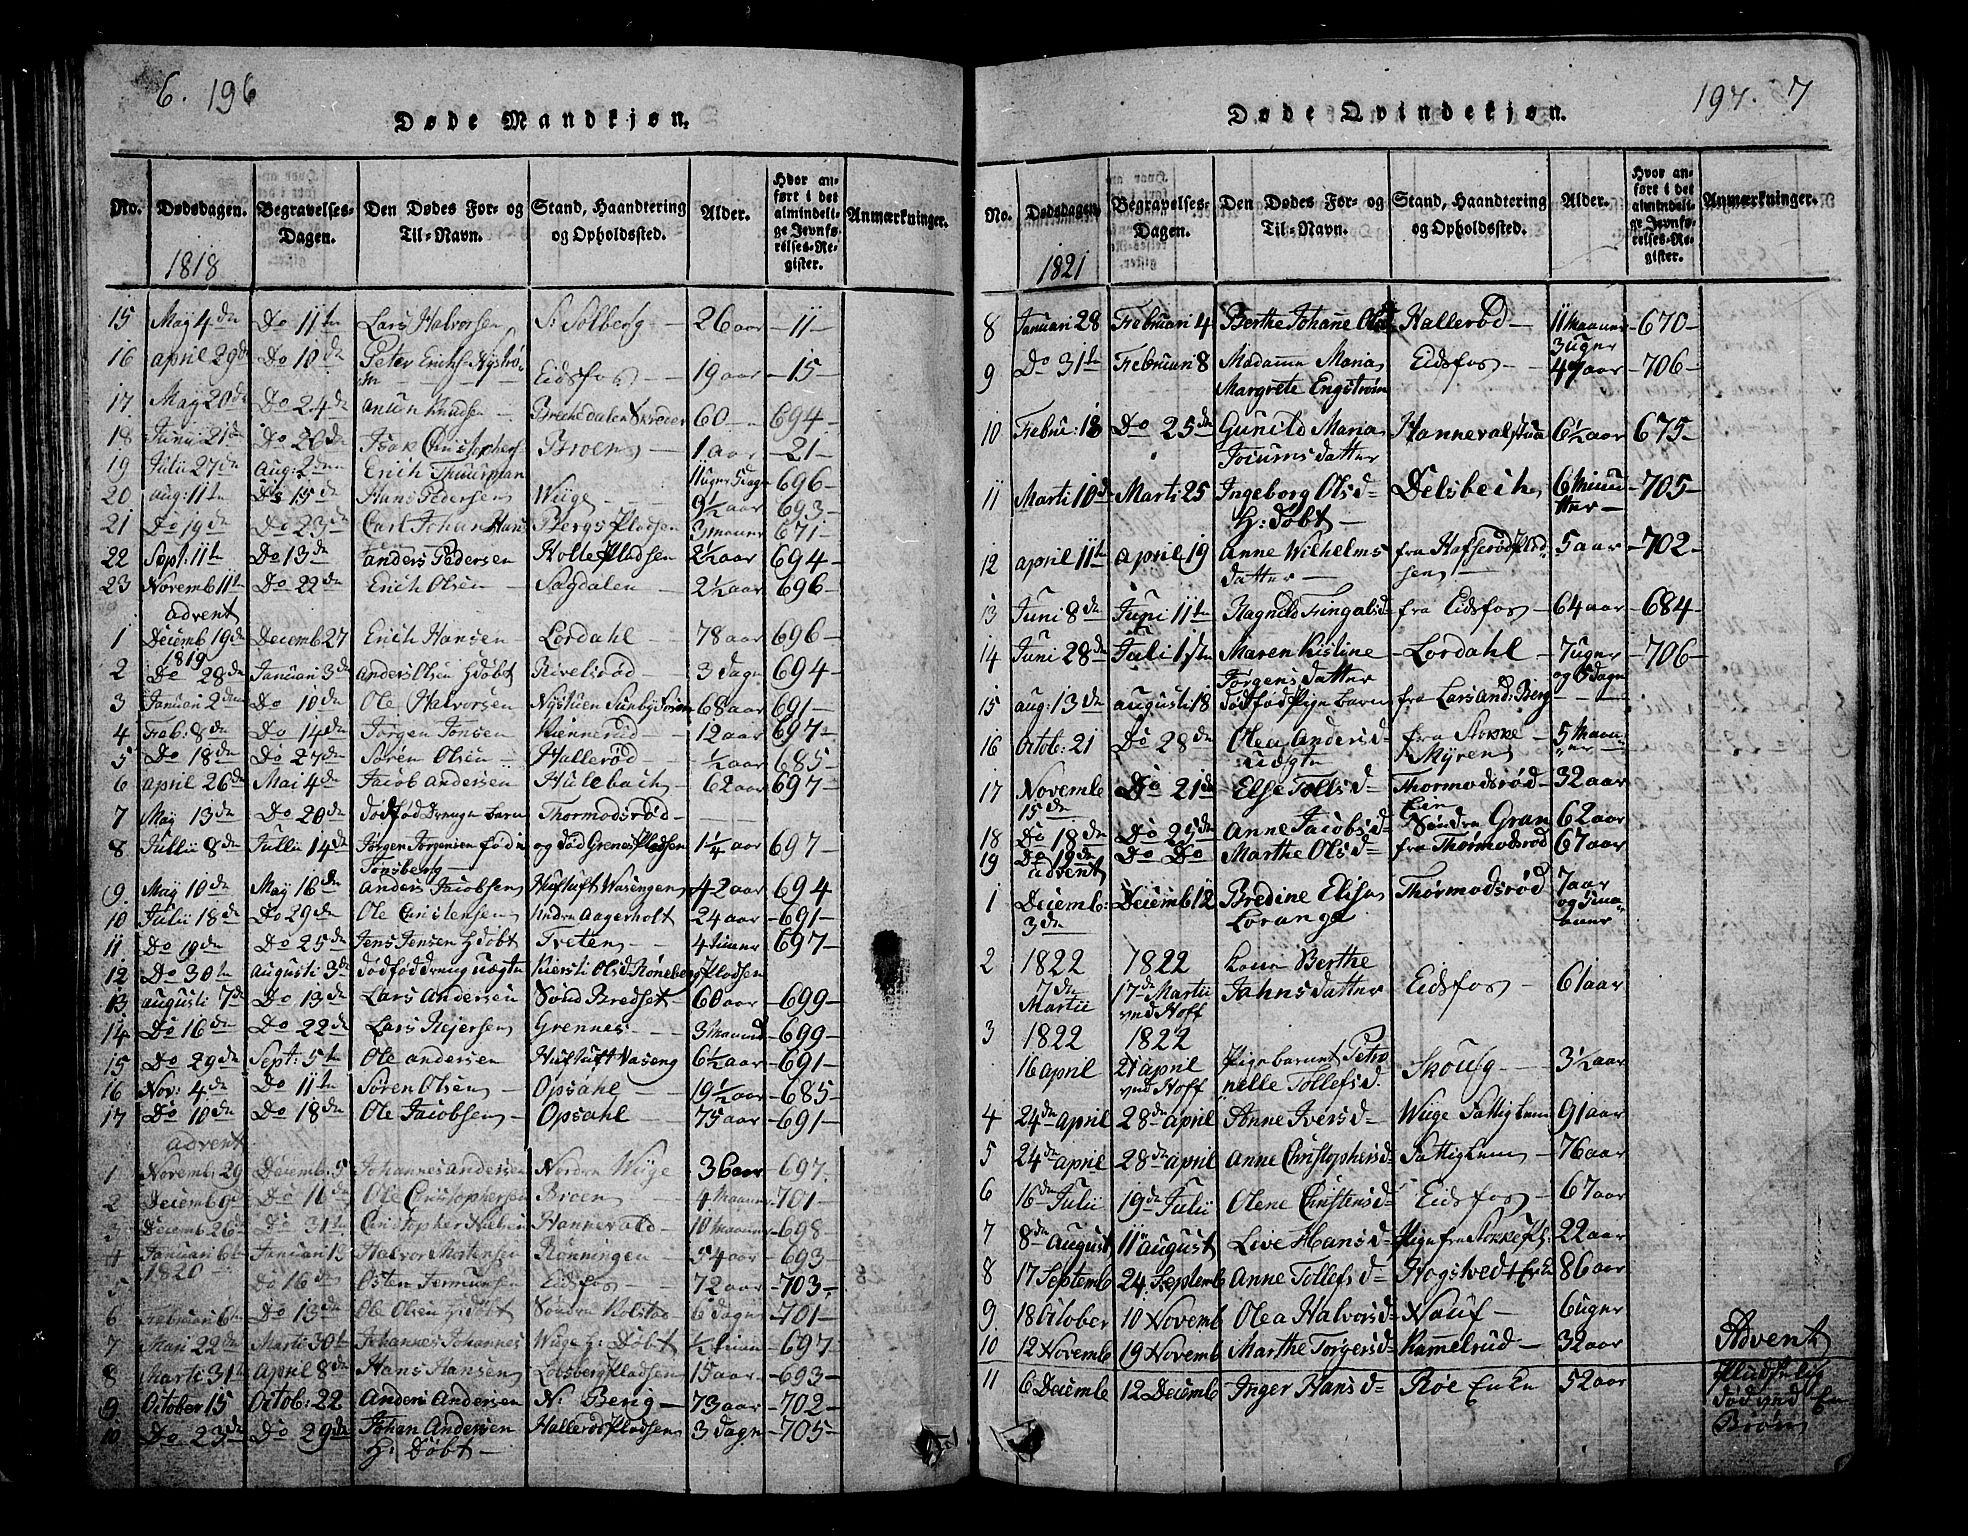 6. 196
Døde Mandkjøn.
No. Dødsdagen. Begravelses-Dagen. Den Dødes For- og Til-Navn. Stand, Haandtering og Opholdssted. Alder. Hvor anført i det almindelige Jevnførelses-Register. Anmærkninger.
1818
15 May 4de Do 11te Lars Halvorsen S: Solberg 26 aar 11
16 april 29de Do 10de Peter Erichs: Nystrøm Eidsfos 19 aar 15
17. May 20de Do 24de Knudsen 60 694
18 Junii 21de Do 26de Isak Christophers: Broen 1 aar 21
19 Julii 27de aug: 2den Erich Thuurman 11 uger 5 dage 696
20 aug: 11te Do 15de Hans Pedersen Wiige 9½ aar 693
21 Do 19de Do 23de Carl Johan Hans Bergs Pladsen 3 maaner 671
22 Sept: 11te Do 13de anders Pedersen Holle Pladsen 2½ aar 694
23 Novemb 11te Do 22de Erich Olsen Sagdalen 2½ aar 696
advent
1 Decemb 19de Decemb 27 Erich Hansen Lørdahl 78 aar 696
1819
2 Do 28de Januari 3de Anders Olsen Hdøbt Rivelsrød 3 dage 694
3 Januari 2den Do 10de Ole Halvorsen Nystuen 68 aar 691
4 Feb: 8de Do 14de Jørgen Jonsen Kinnerød 12 aar 697
5 Do 18de Do 27de Søren Olsen Hallerød ½ aar 685
6 april 26de Mai 4de Jacob Andersen Hulebach 62 aar 697
7 May 13de Do 20de dødfød Drenge barn Thormodsrød
8 Julii 8de Julii 14de Jørgen Jørgensen fød i og død Grenes Pladsen 1¼ aar 697
Tønsberg
9. May 10de May 16de anders Jacobsen Huftuft Wasengen 42 aar 694
10 Julii 18de Do 29de Ole Christensen Nndre Aagerholt 24 aar 691
11. Do 19de Do 25de Jens Jensen Hdøbt Tveten 4 timer 697
12 Do 30te augusti 3de dødfød dreng uægte Kiersti Olsd Røneberg Pladsen
13. augusti 7de Do 13de Lars Andersen Sønd Bredset 60 aar 699
14. Do 16de Do 22de Lars Rejersen Grennes 3 maaned 699
15 Do 29de Sept: 5te Ole andersen Huftuft Vaseng 6½ aar 691
16 Nov: 4de Do 11te Søren Olsen Opsahl 19½ aar 685
17 Do 10de Do 18de Ole Jacobsen Opsahl 75 aar 691
advent
1 Novemb: 29 Decemb: 5 Johannes andersen Nordre Wiige 36 aar 697
2 Decemb 9de Do 16de Ole Christophersen Broen 4 maaner 701
3 Decemb 26de Do 31te Christopher Nielsen Hannevald 10 maaner 698
4 Januari 6te Januari 13 Halvor Mortensen Rønningen 54 aar 693
1820
5 Do 16de Osten Eidsfos 72 aar 703
6 Februari 6te Do 13de Ole Olsen Hdøbt Søndre Holstad 6 dage 701
7 Mari 22de Marti 30te Johannes Johannes Wiige H: Døbt ½ time 697
8 Marti 31te April 8de Hans Hansen Løsberg Pladsen 15 aar 693
9. October 15 Octob: 22 Anders Andersen N: Berig 73 aar 702
10 Do 23de Do 29de Johan Andersen Hallerød Pladsen 3 dage 705
H: Døbt
197. 7
Døde Qvindekjøn.
No. Dødsdagen. Begravelses-Dagen. Den Dødes For- og Til-Navn. Stand, Haandtering og Opholdssted. Alder. Hvor anført i det almindelige Jevnførelses-Register. Anmærkninger.
1821
8 Januari 28 Februari 4 Berthe Johanne Olsd Hallerød 11 maaner 670
3 uger
9 Do 31te Februari 8 Madamme Maria Eidsfos 47 aar 706
Margrete Engstrøm
10 Febru: 18 Do 25de Gunild Maria Hannevalstua 6½ aar 675
Jocumsdatter
11 Marti 10de Marti 25 Ingeborg Olsd Delsbech 6 Minutter 705
H: døbt
12 april 11te april 19 anne Wilhelms fra Hafserød Plad 5 aar 702
datter sen
13 Juni 8de Juni 11te Ragnild Fingalsd fra Eidsfos 64 aar 684
14 Juni 28de Juli 1ste Maren Kistine Lørdahl 7 uger 706
Jørgensdatter og 6 dage
15 aug: 13de augusti 18 dødfød Pige barn fra Lars and: Berg
16 Octob: 21 Do 28de Olea Andersd fra Stokke 5 maaner
uægte Myren
17 Novembe Do 21de Else Tollsd Thormodsrød 32 aar
15de Eie
18 Do 18de Do 25de Anne Jacobsd Søndre Gran 62 aar
19 Do 19de Do Do Marthe Olsd fra Thormodsrød 67 aar
advent
1 Decemb: Decemb 12 Bredine Elisa Thormodsrød 7 aar
3de Lorange og 9 maaner
2 1822 1822 kone Berthe
7de Martii 17de Martii Jahnsdatter Eidsfos 61 aar
ved Hoff
3 1822 1822
16 april 21 april Pigebarnet Petro Skoug 3½ aar
ved Hoff nelle Tollefsd.
4 24de april 28de april Anne Iversd Wiige Fattiglem 91 aar
5 24de april 28de april Anne Christophersd Fattiglem 76 aar
6 16de Julii 19de Julii Olene Christensd Eidsfos 67 aar
7 8de August 11 august Live Hansd Pige fra Stokke Pl: 22 aar
8 17 Septemb 24. Septemb Anne Tollefsd Hogstved Enke 86 aar
9. 18 October 10 Novemb Olea Halvorsd Nauf 6 uger
10 12 Novemb 19 Novemb Marthe Torgersd Ramelrud 32 aar Advent
11 6 Decembe 12 Decembe Inger Hansd Røe Enke 52 aar Pludselig
død ved En
Brønn